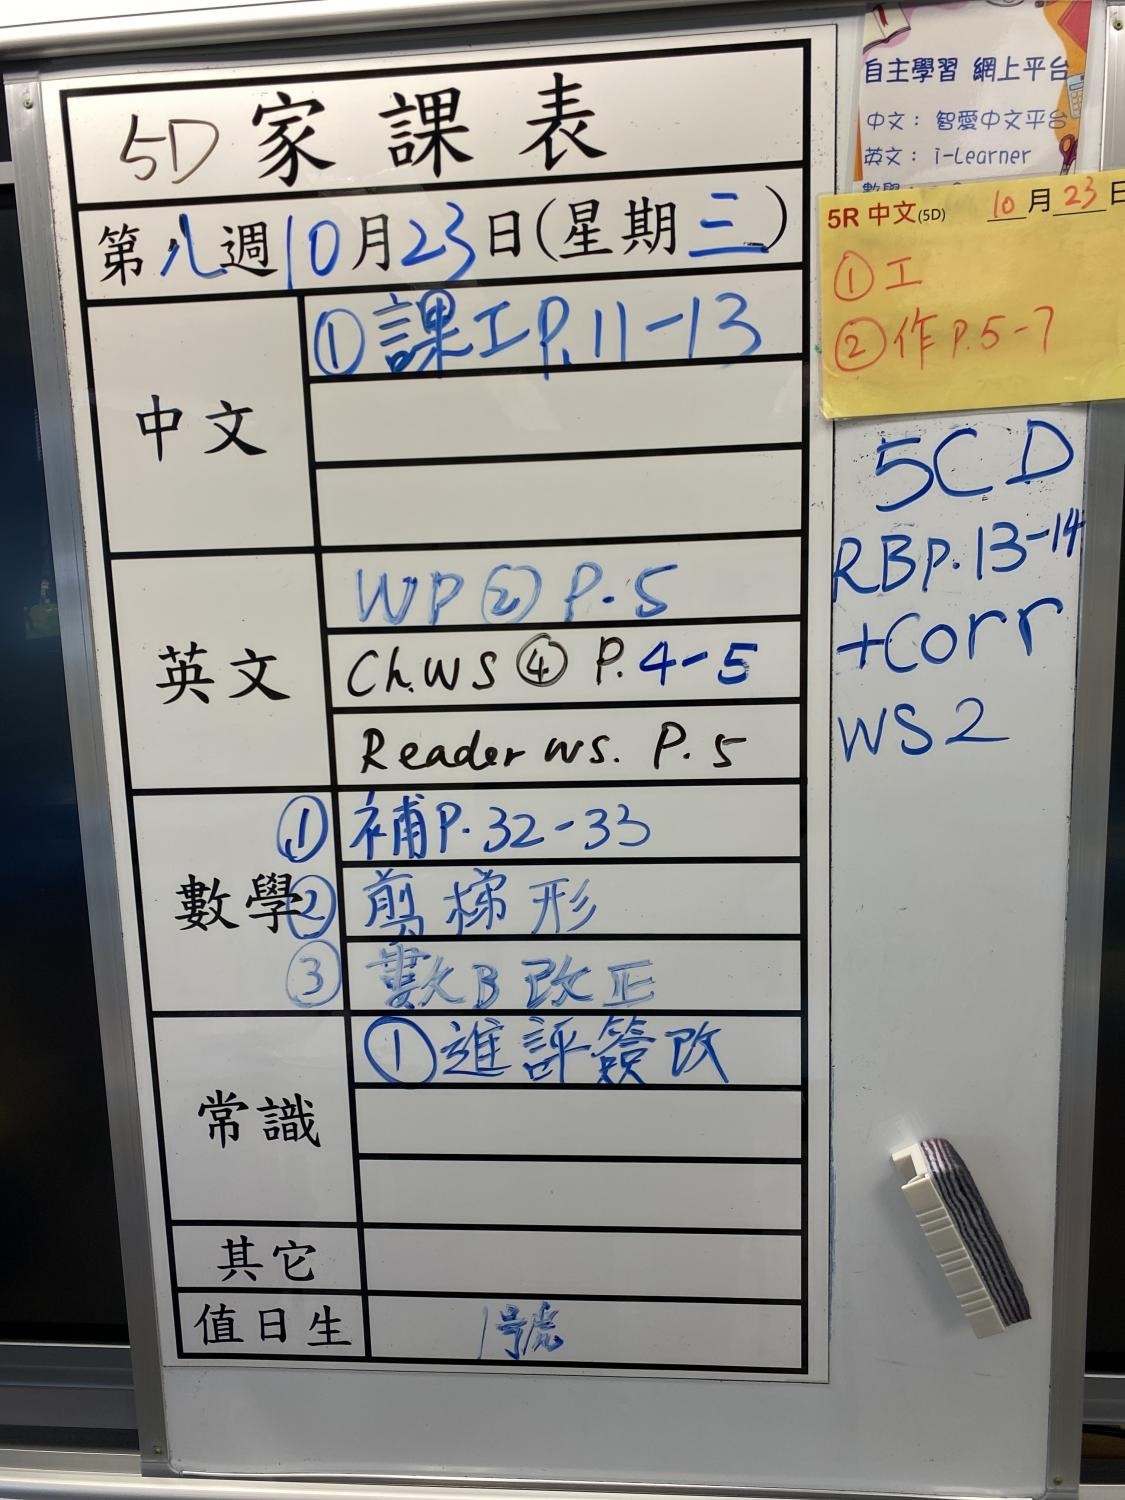 5D 家課表
第八週10月23日(星期三)
中文
①課工P.11-13
英文
WP② P.5
Ch.WS④ P.4-5
Reader WS. P.5
數學
①補P.32-33
②剪梯形
③數B改正
常識
①進評簽改
其它
值日生
1號
自主學習 網上平台
中文: 智愛中文平台
英文: i-Learner
5R 中文(5D) 10月23日
①工
②作P.5-7
5CD
RBp.13-14
+Corr
WS2